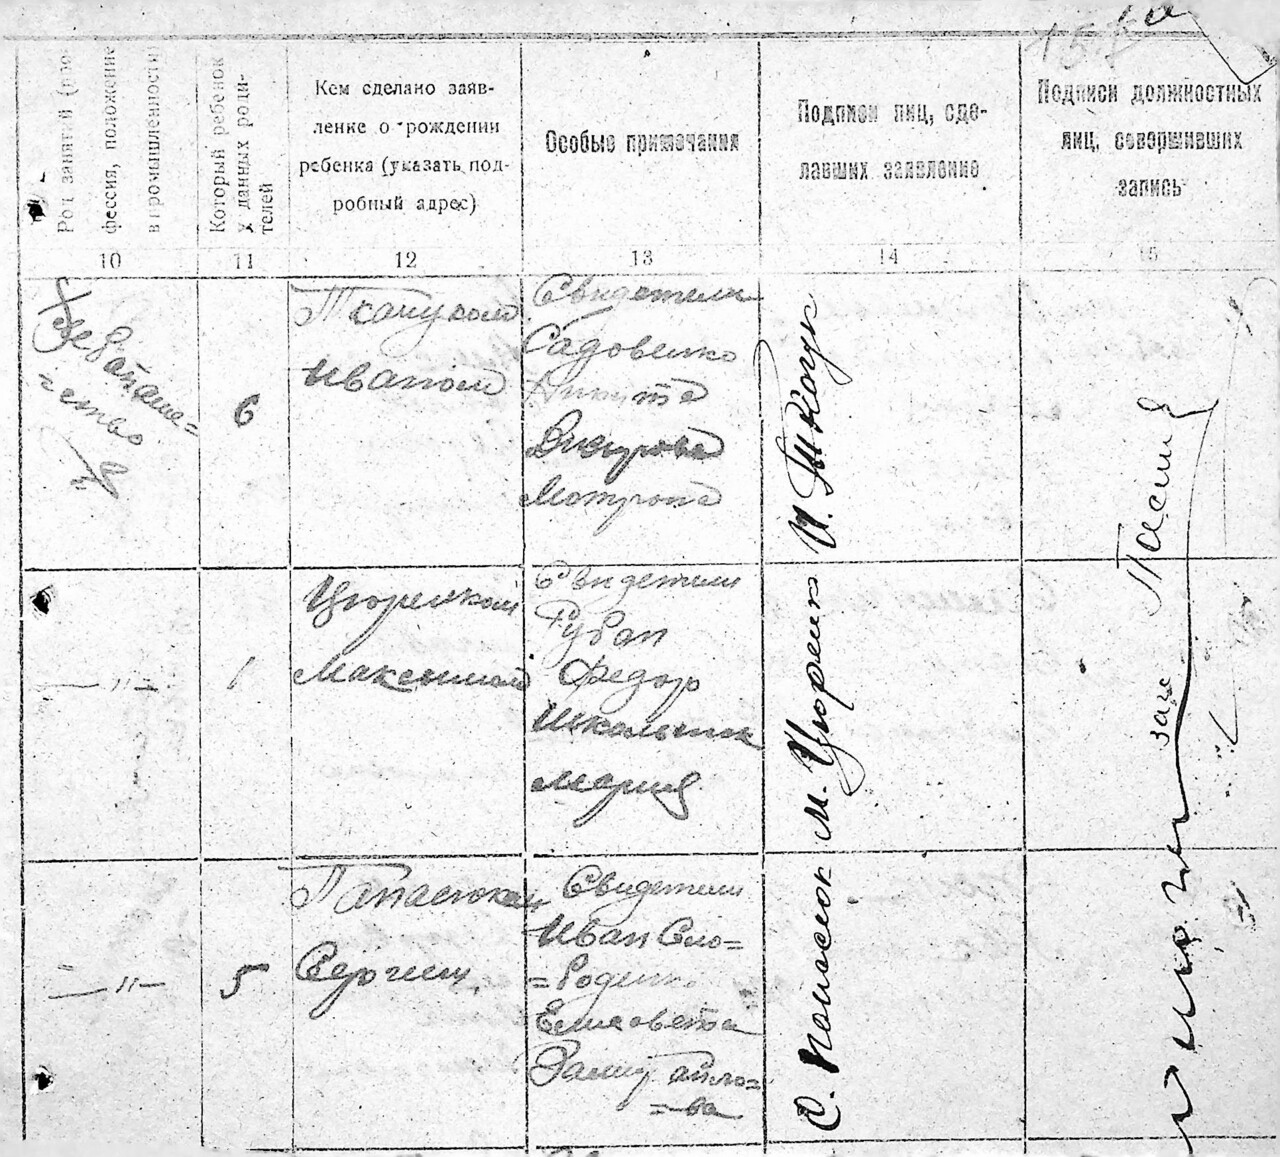 Род занятий (про-
фессия, положение
в промышленности)
Который ребенок
у данных роди-
телей
Кем сделано заяв-
ление о рождении
ребенка (указать под-
робный адрес)
Особые примечания
Подписи лиц, сде-
лавших заявление
Подписи должностных
лиц, совершивших
запись
10
11
12
13
14
15
6
Ткачуком
Иваном
Свидетели
Садовенко
Никита
Мотрона
И. Ткачук
— „ —
1
Цюрепком
Максимом
Свидетели
Рубан
Федор
Школьник
Мария
М. Цюреп
— „ —
5
Панасюком
Сергием
Свидетели
Иван Сло=
=боденко
Елисовета
=ва
С. Понасюк